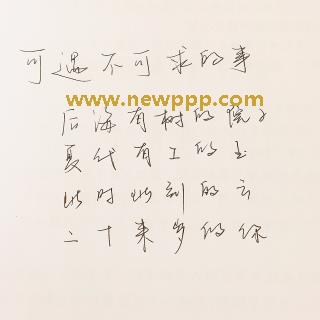 可遇不可求的事
www.newppp.com
后海有树的院子
夏代有工的玉
此时此刻的云
二十来岁的你